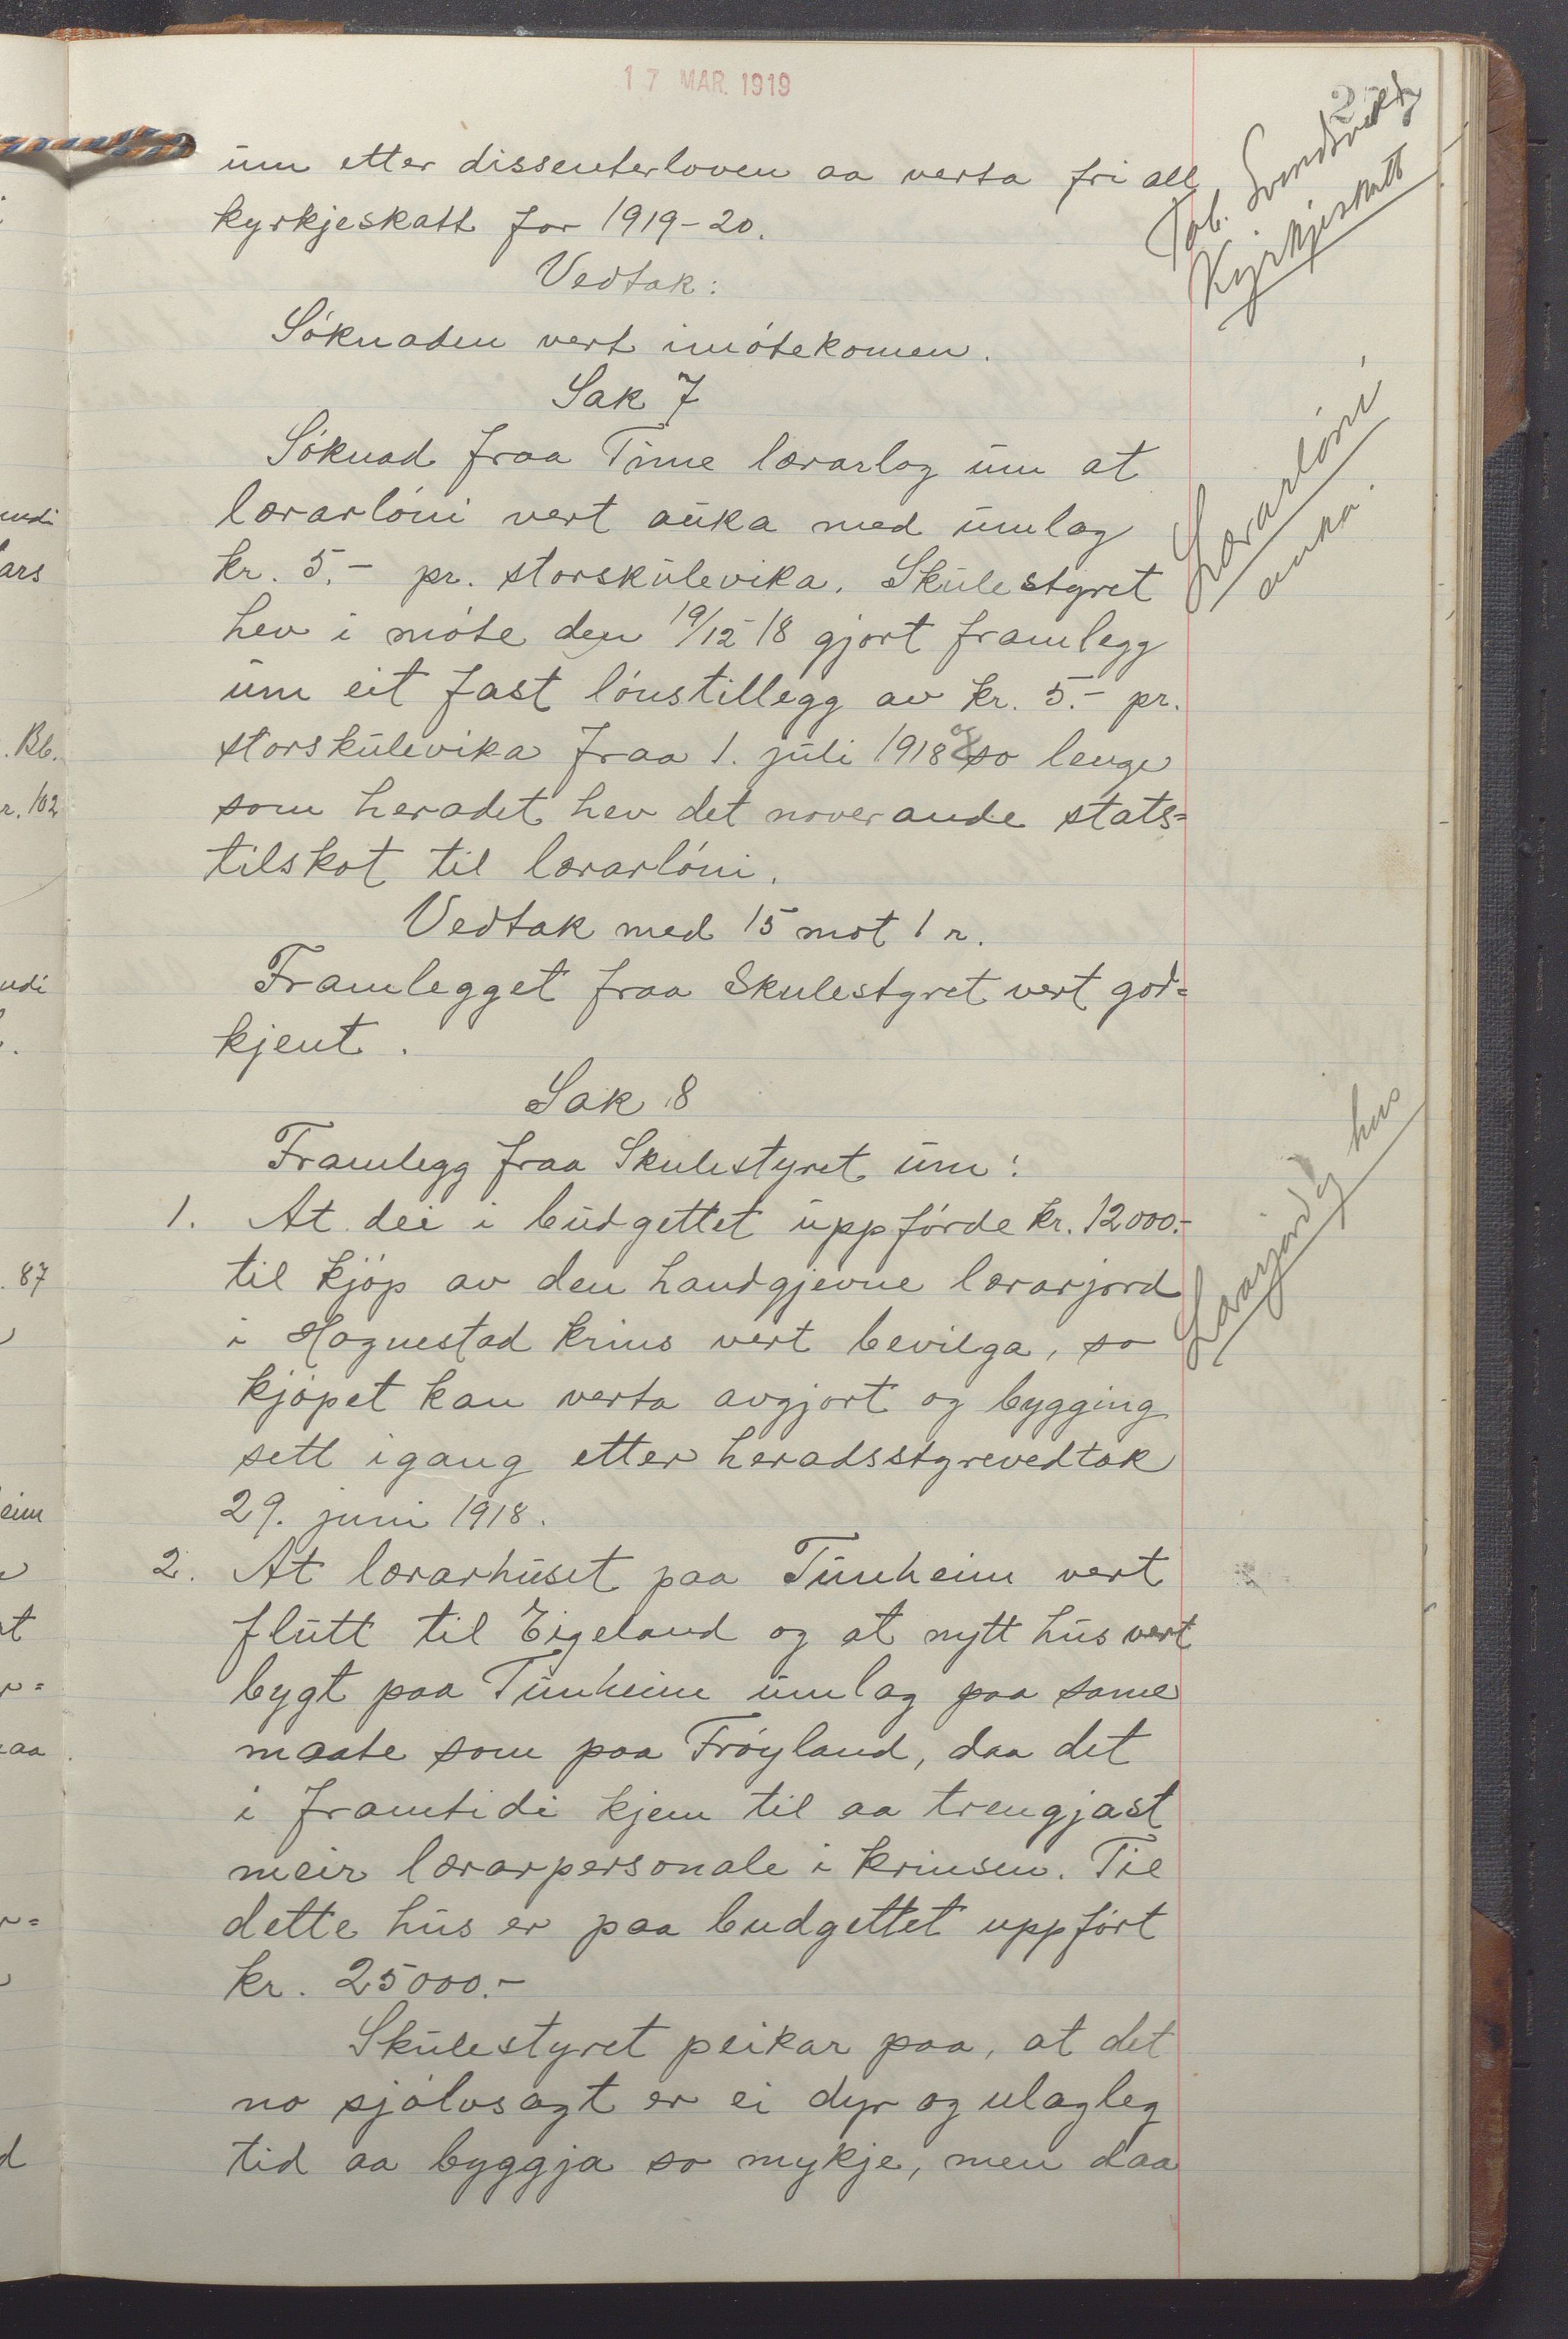 17 MAR. 1919
um etter dissenterloven aa verta fri all
kyrkjeskatt for 1919-20.
Vedtak:
Söknaden vert imötekomen.
Sak 7
Söknad fraa Time lærarlag um at
lærarlöni vert auka med umlag
kr. 5.- pr. storskulevika. Skulestyret
hev i möte den 19/12 18 gjort framlegg
um eit fast lönstillegg av kr. 5.- pr.
storskulevika fraa 1. juli 1918 og so lenge
som heradet hev det noverande stats=
tilskot til lærarlöni.
Vedtak med 15 mot 1 r.
Framlegget fraa Skulestyret vert god=
kjent.
Sak 8
Framlegg fraa Skulestyret um:
1. At dei i budgettet uppförde kr. 12000.-
til kjöp av den handgjevne lærarjord
i Hognestad krins vert bevilga, so
kjöpet kan verta avgjort og bygging
sett igang etter heradsstyrevedtak
29. juni 1918.
2. At lærarhuset paa Tunheim vert
flutt til Eigeland og at nytt hus vert
bygt paa Tunheim umlag paa same
maate som paa Fröyland, daa det
i framtidi kjem til aa trengjast
meir lærarpersonale i krinsen. Til
dette hus er paa budgettet uppfört
kr. 25000.-
Skulestyret peikar paa, at det
no sjölvsagt er ei dyr og ulagleg
tid aa byggja so mykje, men daa
Kyrkjeskatt
Lærarlöni
auka.
Lærarjord og hus